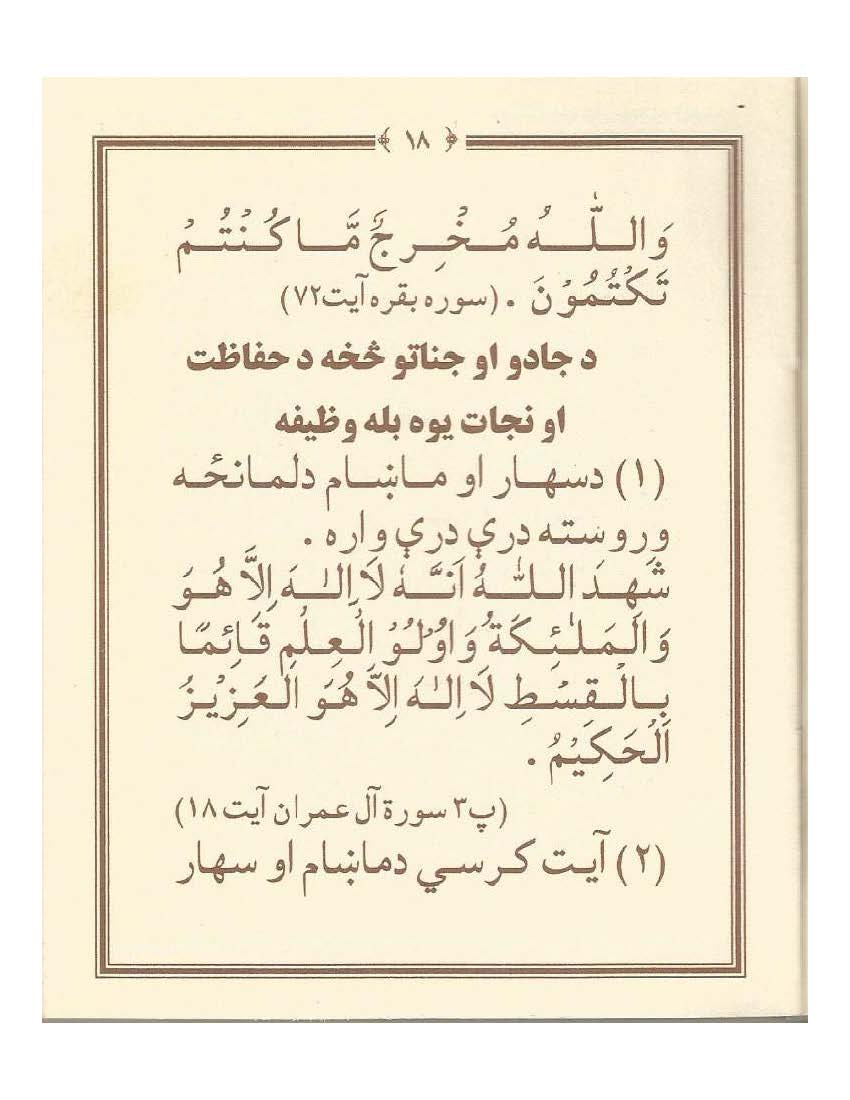 ﴿ ۱۸ ﴾
وَاللّٰهُ مُخْرِجٌ مَّا كُنْتُمْ
تَكْتُمُوْنَ . (سوره بقره آیت۷۲)
د جادو او جناتو څخه د حفاظت
او نجات یوه بله وظیفه
(۱) دسهار او ماښام دلمانځه
وروسته درې درې واره .
شَهِدَ اللّٰهُ اَنَّهٗ لَا اِلٰهَ اِلَّا هُوَ
وَالْمَلٰئِكَةُ وَاُولُوْ الْعِلْمِ قَائِمًا
بِالْقِسْطِ لَا اِلٰهَ اِلَّا هُوَ الْعَزِيْزُ
الْحَكِيْمُ .
(پ۳ سورة آل عمران آیت۱۸)
(۲) آیت کرسي دماښام او سهار